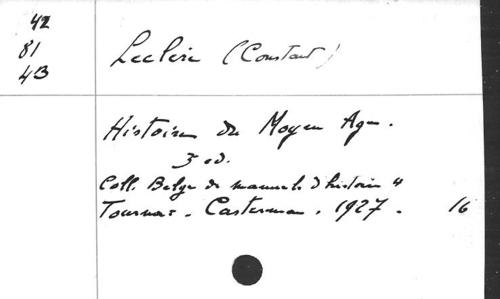 42
81
4B
Leclère (Constant)
Histoire du Moyen Age.
3 ed.
Coll. Belge de manuels d'histoire "
Tournai. Casterman. 1927. 16